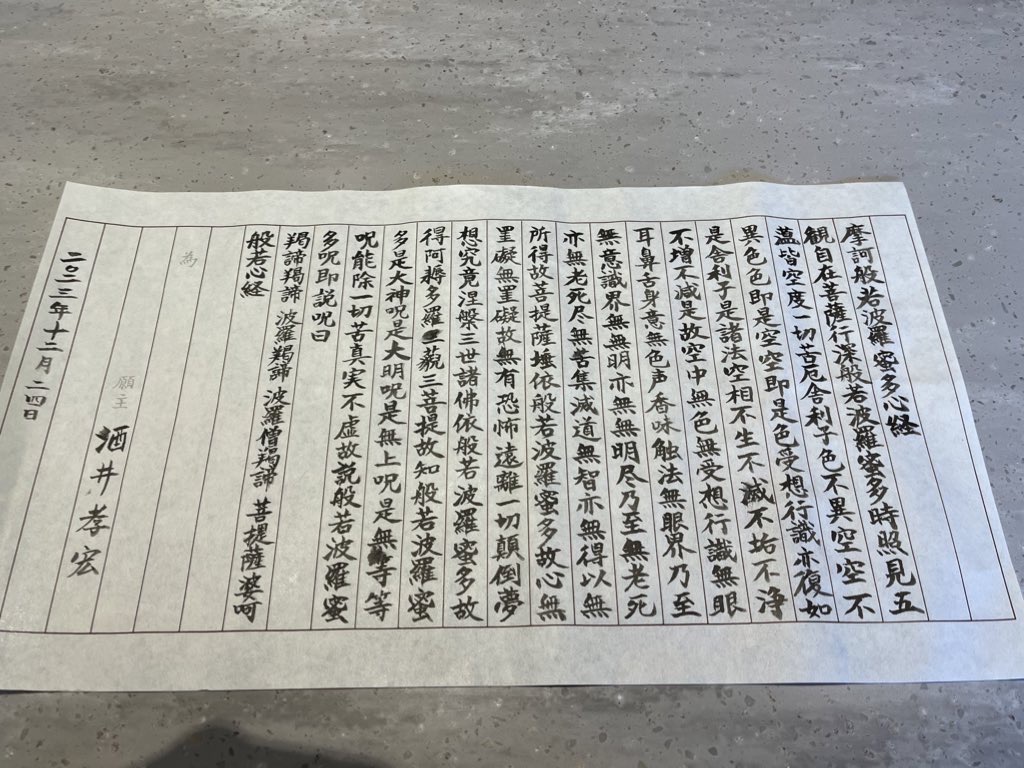 摩訶般若波羅蜜多心経
観自在菩薩行深般若波羅蜜多時照見五
蘊皆空度一切苦厄舎利子色不異空空不
異色色即是空空即是色受想行識亦復如
是舎利子是諸法空相不生不滅不垢不浄
不増不減是故空中無色無受想行識無眼
耳鼻舌身意無色声香味触法無眼界乃至
無意識界無無明亦無無明尽乃至無老死
亦無老死尽無苦集滅道無智亦無得以無
所得故菩提薩埵依般若波羅蜜多故心無
罣礙無罣礙故無有恐怖遠離一切顛倒夢
想究竟涅槃三世諸佛依般若波羅蜜多故
得阿耨多羅三藐三菩提故知般若波羅蜜
多是大神呪是大明呪是無上呪是無等等
呪能除一切苦真実不虚故説般若波羅蜜
多呪即説呪曰
羯諦羯諦 波羅羯諦 波羅僧羯諦 菩提薩婆呵
般若心経
為
願主 酒井孝宏
二〇二三年十二月二四日